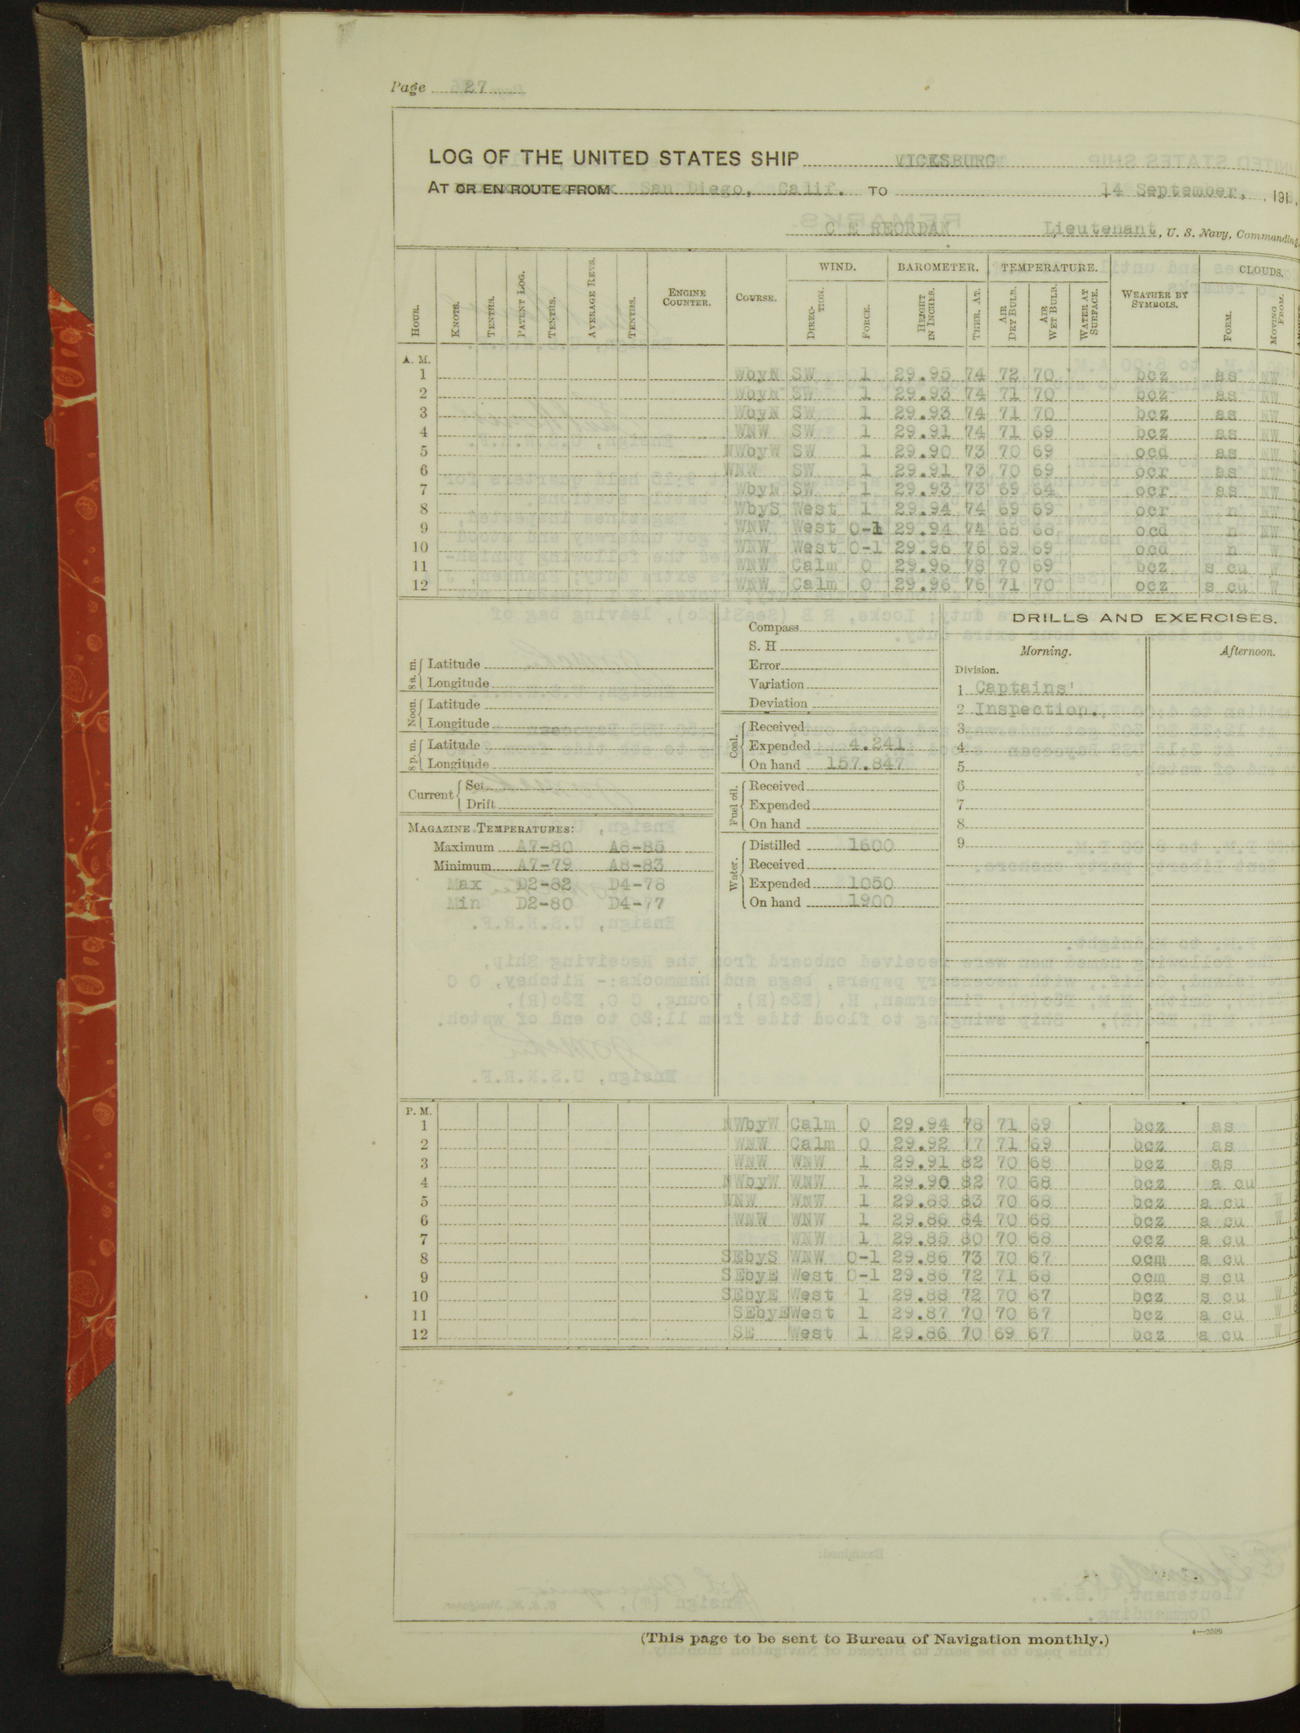 Page 27
LOG OF THE UNITED STATES SHIP VICKSBURG
AT OR EN ROUTE FROM San Diego, Calif. TO 14 September, , 191
C E REORDAN Lieutenant, U. S. Navy, Commanding.
HOUR. KNOTS. TENTHS. PATENT LOG. TENTHS. AVERAGE REVS. TENTHS. ENGINE COUNTER. COURSE. WIND. DIRECTION. FORCE. BAROMETER. HEIGHT IN INCHES. THER. AT. TEMPERATURE. AIR DRY BULB. AIR WET BULB. WATER AT SURFACE. WEATHER BY SYMBOLS. CLOUDS. FORM. MOVING FROM.
A. M.
1 WbyN SW 1 29.95 74 72 70 bcz as NW
2 WbyN SW 1 29.93 74 71 70 bcz as NW
3 WbyN SW 1 29.93 74 71 70 bcz as NW
4 WNW SW 1 29.91 74 71 69 bcz as NW
5 NWbyW SW 1 29.90 73 70 69 ocd as NW
6 WNW SW 1 29.91 73 70 69 ocr as NW
7 WbyN SW 1 29.93 73 69 64 ocr as NW
8 WbyS West 1 29.94 74 69 69 ocr n NW
9 WNW West 0-1 29.94 74 68 68 ocd n NW
10 WNW West 0-1 29.96 76 69 69 ocd n W
11 WNW Calm 0 29.96 78 70 69 bcz s cu W
12 WNW Calm 0 29.96 76 71 70 ocz s cu W
8 a. m. Latitude
Longitude
Noon. Latitude
Longitude
8 p. m. Latitude
Longitude
Current Set
Drift
MAGAZINE TEMPERATURES:
Maximum A7-80 A8-85
Minimum A7-79 A8-83
Max D2-82 D4-78
Min D2-80 D4-77
Compass
S. H
Error
Variation
Deviation
Coal. Received
Expended 4.241
On hand 157.847
Fuel oil. Received
Expended
On hand
Water. Distilled 1600
Received
Expended 1050
On hand 1900
DRILLS AND EXERCISES.
Morning. Afternoon.
Division.
1 Captains'
2 Inspection.
3
4
5
6
7
8
9
P. M.
1 NWbyW Calm 0 29.94 78 71 69 bcz as
2 WNW Calm 0 29.92 77 71 69 bcz as
3 WNW WNW 1 29.91 82 70 68 bcz as
4 NWbyW WNW 1 29.90 82 70 68 bcz a cu
5 WNW WNW 1 29.88 83 70 68 bcz a cu W
6 WNW WNW 1 29.86 84 70 68 bcz a cu W
7 WNW 1 29.85 80 70 68 ocz a cu
8 SEbyS WNW 0-1 29.86 73 70 67 ocm a cu
9 SEbyE West 0-1 29.86 72 71 68 ocm s cu
10 SEbyE West 1 29.88 72 70 67 bcz s cu W
11 SEbyE West 1 29.87 70 70 67 bcz a cu W
12 SE West 1 29.86 70 69 67 bcz a cu W
(This page to be sent to Bureau of Navigation monthly.)